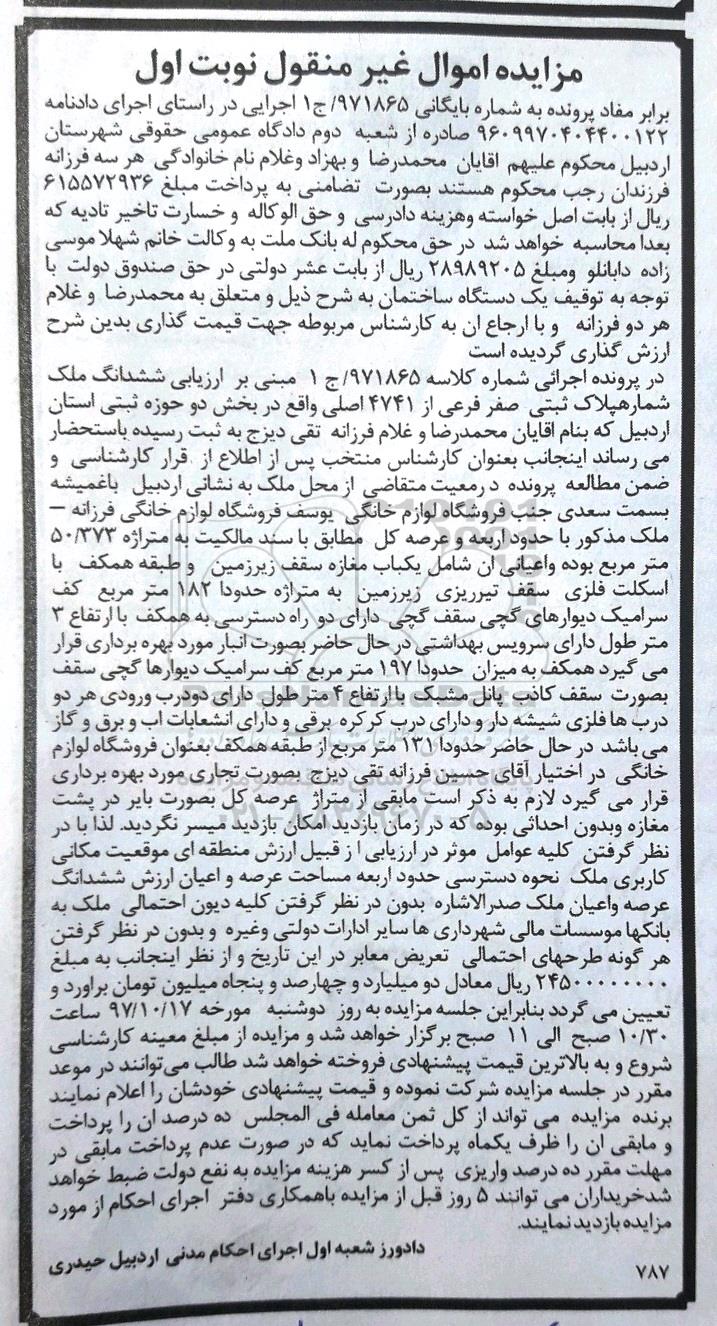 مزایده اموال غیر منقول نوبت اول
برابر مفاد پرونده به شماره بایگانی ۹۷۱۸۶۵/ ج۱ اجرایی در راستای اجرای دادنامه
۹۶۰۹۹۷۰۴۰۴۴۰۰۱۲۲ صادره از شعبه دوم دادگاه عمومی حقوقی شهرستان
اردبیل محکوم علیهم اقایان محمدرضا و بهزاد وغلام نام خانوادگی هر سه فرزانه
فرزندان رجب محکوم هستند بصورت تضامنی به پرداخت مبلغ ۶۱۵۵۷۲۹۳۶
ریال از بابت اصل خواسته وهزینه دادرسی و حق الوکاله و خسارت تاخیر تادیه که
بعدا محاسبه خواهد شد در حق محکوم له بانک ملت به وکالت خانم شهلا موسی
زاده دابانلو ومبلغ ۲۸۹۸۹۲۰۵ ریال از بابت عشر دولتی در حق صندوق دولت با
توجه به توقیف یک دستگاه ساختمان به شرح ذیل و متعلق به محمدرضا و غلام
هر دو فرزانه و با ارجاع ان به کارشناس مربوطه جهت قیمت گذاری بدین شرح
ارزش گذاری گردیده است
در پرونده اجرائی شماره کلاسه ۹۷۱۸۶۵/ ج ۱ مبنی بر ارزیابی ششدانگ ملک
شمارهپلاک ثبتی صفر فرعی از ۴۷۴۱ اصلی واقع در بخش دو حوزه ثبتی استان
اردبیل که بنام اقایان محمدرضا و غلام فرزانه تقی دیزج به ثبت رسیده باستحضار
می رساند اینجانب بعنوان کارشناس منتخب پس از اطلاع از قرار کارشناسی و
ضمن مطالعه پرونده د رمعیت متقاضی از محل ملک به نشانی اردبیل باغمیشه
بسمت سعدی جنب فروشگاه لوازم خانگی یوسف فروشگاه لوازم خانگی فرزانه –
ملک مذکور با حدود اربعه و عرصه کل مطابق با سند مالکیت به متراژه ۵۰/۳۷۳
متر مربع بوده واعیانی ان شامل یکباب مغازه سقف زیرزمین و طبقه همکف با
اسکلت فلزی سقف تیرریزی زیرزمین به متراژه حدودا ۱۸۲ متر مربع کف
سرامیک دیوارهای گچی سقف گچی دارای دو راه دسترسی به همکف با ارتفاع ۳
متر طول دارای سرویس بهداشتی در حال حاضر بصورت انبار مورد بهره برداری قرار
می گیرد همکف به میزان حدودا ۱۹۷ متر مربع کف سرامیک دیوارها گچی سقف
بصورت سقف کاذب پانل مشبک با ارتفاع ۴ متر طول دارای دودرب ورودی هر دو
درب ها فلزی شیشه دار و دارای درب کرکره برقی و دارای انشعابات اب و برق و گاز
می باشد در حال حاضر حدودا ۱۳۱ متر مربع از طبقه همکف بعنوان فروشگاه لوازم
خانگی در اختیار آقای حسین فرزانه تقی دیزج بصورت تجاری مورد بهره برداری
قرار می گیرد لازم به ذکر است مابقی از متراژ عرصه کل بصورت بایر در پشت
مغازه وبدون احداثی بوده که در زمان بازدید امکان بازدید میسر نگردید. لذا با در
نظر گرفتن کلیه عوامل موثر در ارزیابی ا ز قبیل ارزش منطقه ای موقعیت مکانی
کاربری ملک نحوه دسترسی حدود اربعه مساحت عرصه و اعیان ارزش ششدانگ
عرصه واعیان ملک صدرالاشاره بدون در نظر گرفتن کلیه دیون احتمالی ملک به
بانکها موسسات مالی شهرداری ها سایر ادارات دولتی وغیره و بدون در نظر گرفتن
هر گونه طرحهای احتمالی تعریض معابر در این تاریخ و از نظر اینجانب به مبلغ
۲۴۵۰۰۰۰۰۰۰۰ ریال معادل دو میلیارد و چهارصد و پنجاه میلیون تومان براورد و
تعیین می گردد بنابراین جلسه مزایده به روز دوشنبه مورخه ۹۷/۱۰/۱۷ ساعت
۱۰/۳۰ صبح الی ۱۱ صبح برگزار خواهد شد و مزایده از مبلغ معینه کارشناسی
شروع و به بالاترین قیمت پیشنهادی فروخته خواهد شد طالب می‌توانند در موعد
مقرر در جلسه مزایده شرکت نموده و قیمت پیشنهادی خودشان را اعلام نمایند
برنده مزایده می تواند از کل ثمن معامله فی المجلس ده درصد ان را پرداخت
و مابقی ان را ظرف یکماه پرداخت نماید که در صورت عدم پرداخت مابقی در
مهلت مقرر ده درصد واریزی پس از کسر هزینه مزایده به نفع دولت ضبط خواهد
شدخریداران می توانند ۵ روز قبل از مزایده باهمکاری دفتر اجرای احکام از مورد
مزایده بازدید نمایند.
دادورز شعبه اول اجرای احکام مدنی اردبیل حیدری
۷۸۷